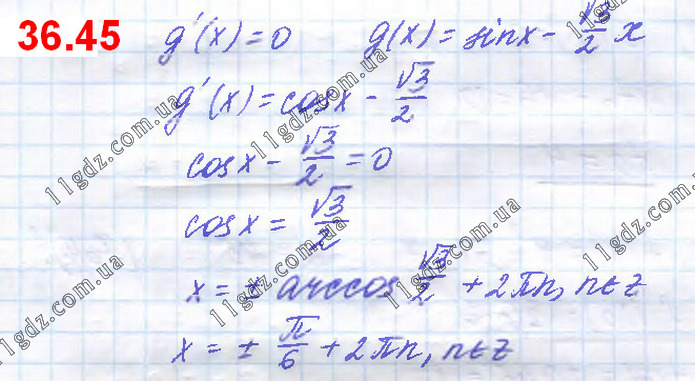 36.45 g'(x)=0 g(x)=sinx-√3/2 x
g'(x)=cosx-√3/2
cosx-√3/2=0
cosx=√3/2
x=±arccos √3/2+2πn, n∈Z
x=±π/6+2πn, n∈Z
11gdz.com.ua
11gdz.com.ua
11gdz.com.ua
11gdz.com.ua
11gdz.com.ua
11gdz.com.ua